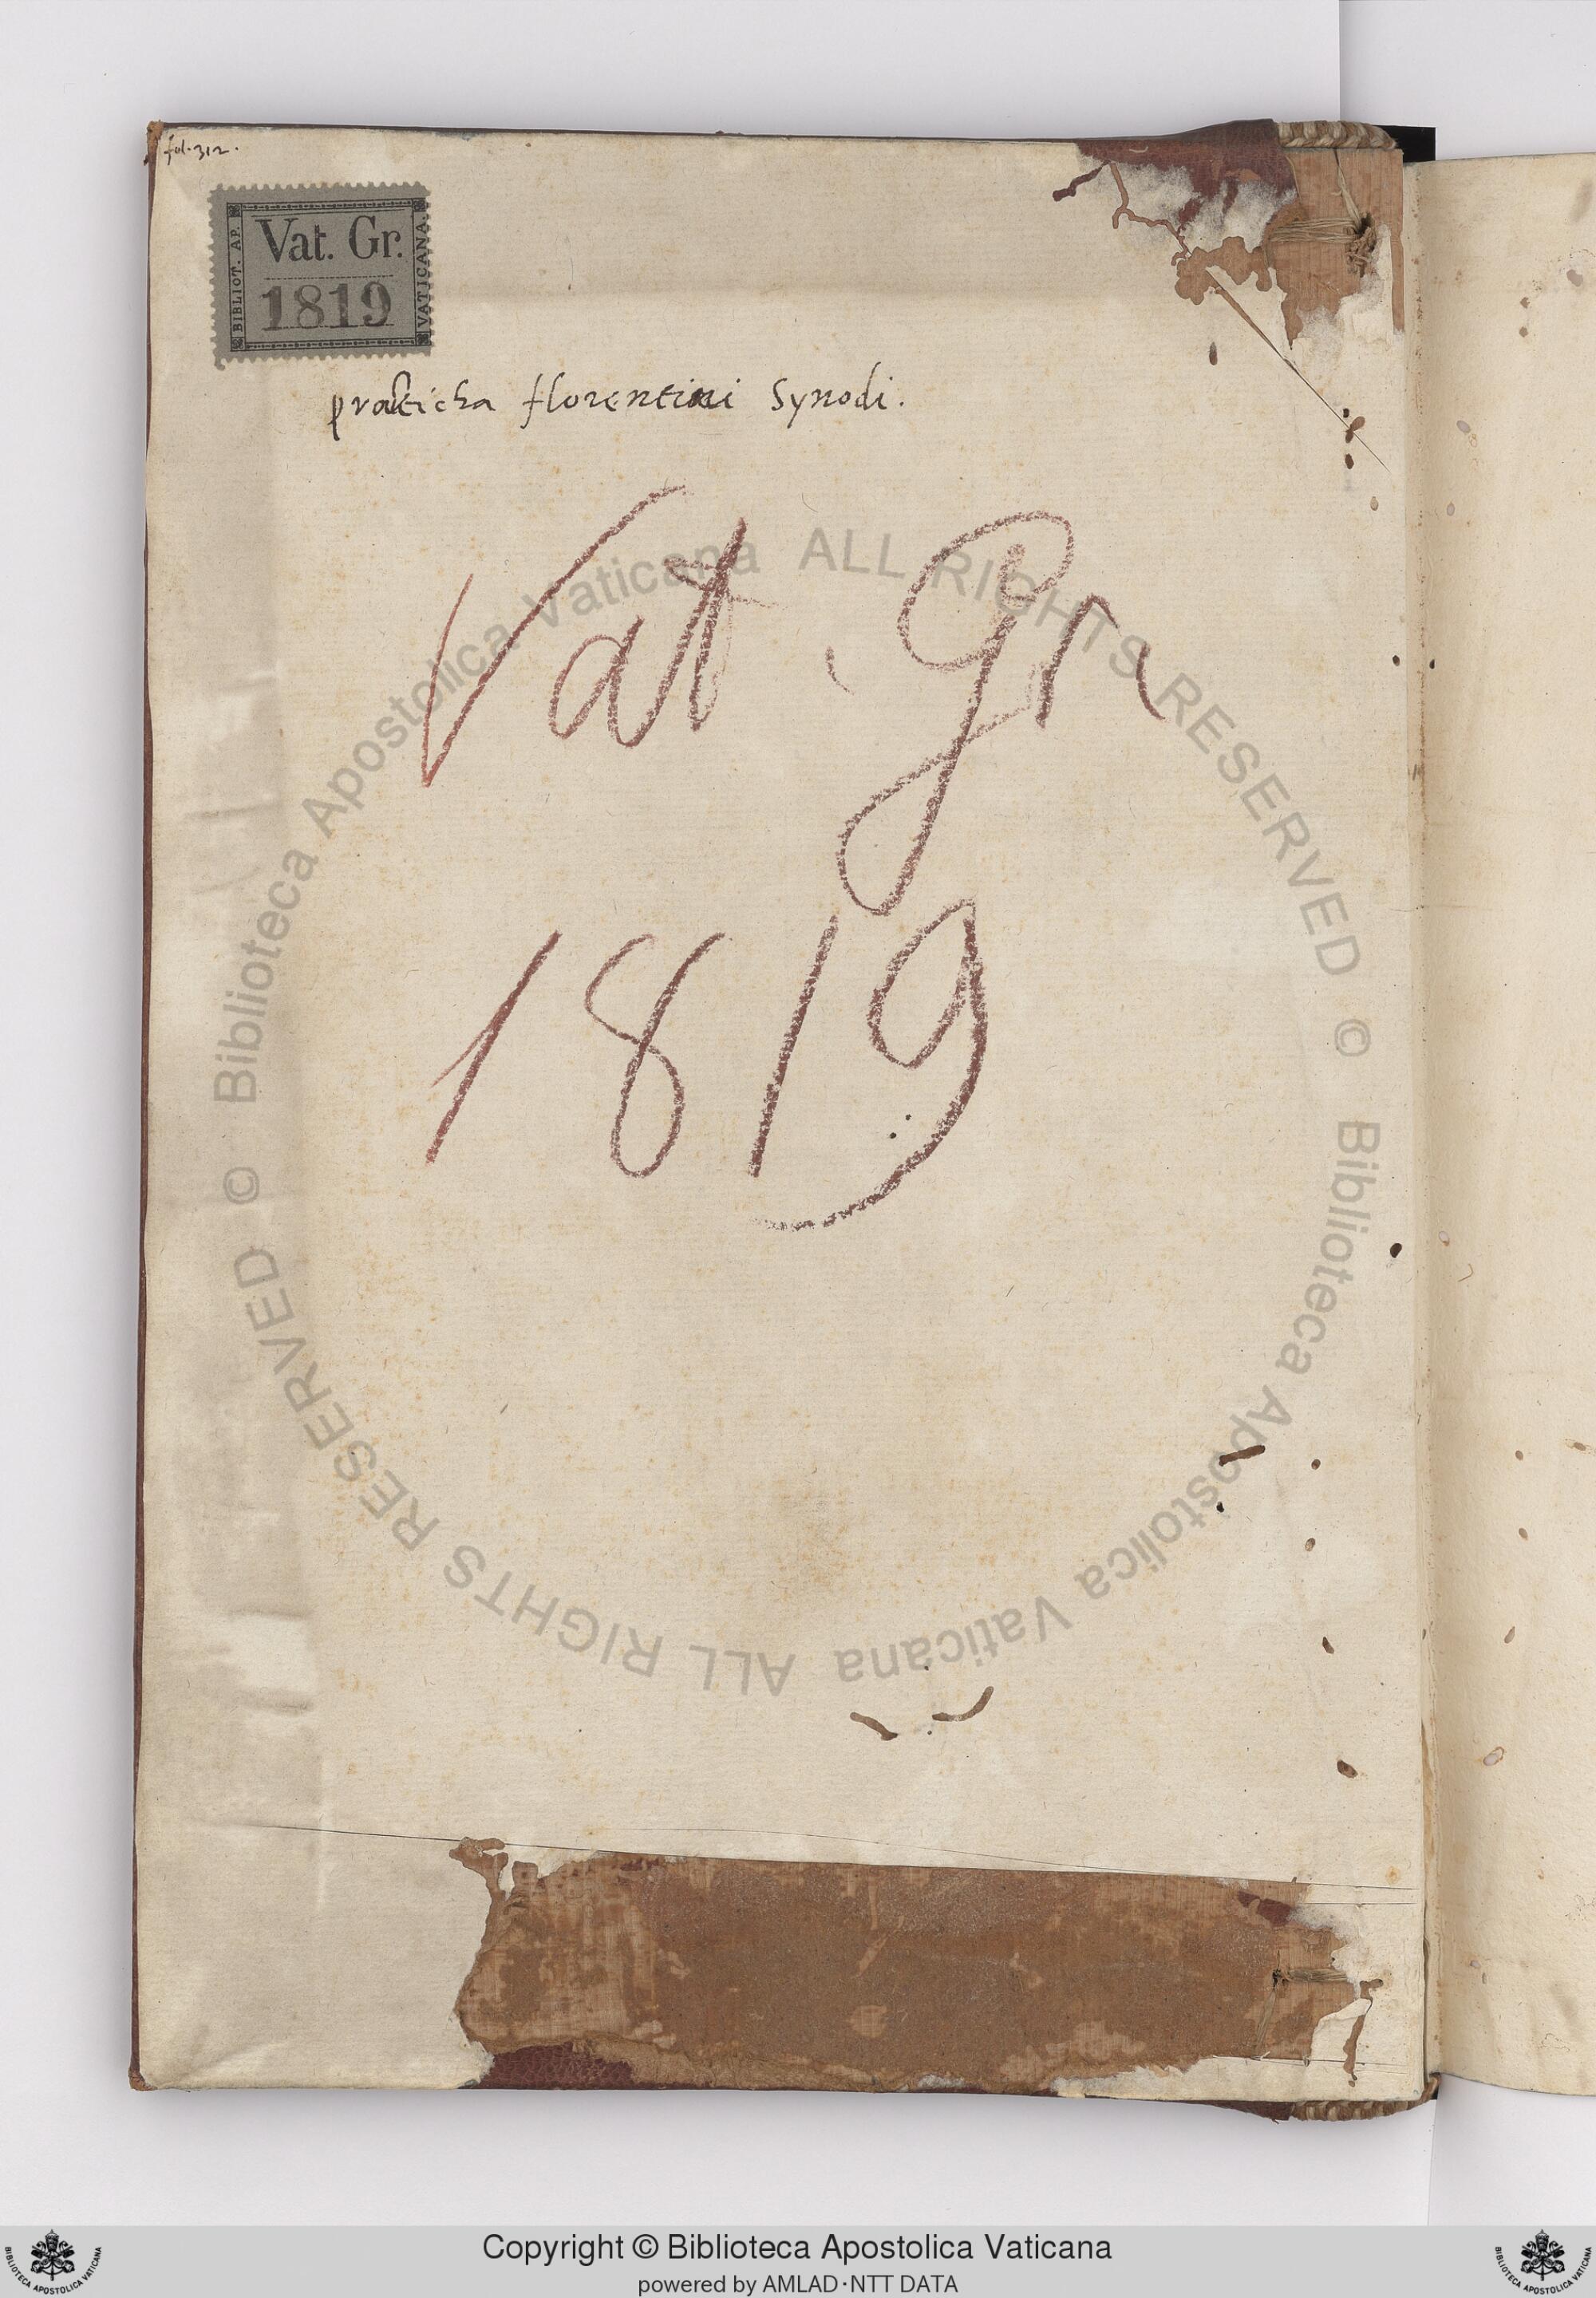 fol. 312.
BIBLIOT. AP. VATICANA.
Vat. Gr.
1819
practicha florentini Synodi.
Vat. Gr
1819
© Biblioteca Apostolica Vaticana ALL RIGHTS RESERVED © Biblioteca Apostolica Vaticana ALL RIGHTS RESERVED
Copyright © Biblioteca Apostolica Vaticana
powered by AMLAD·NTT DATA
BIBLIOTECA APOSTOLICA VATICANA
BIBLIOTECA APOSTOLICA VATICANA